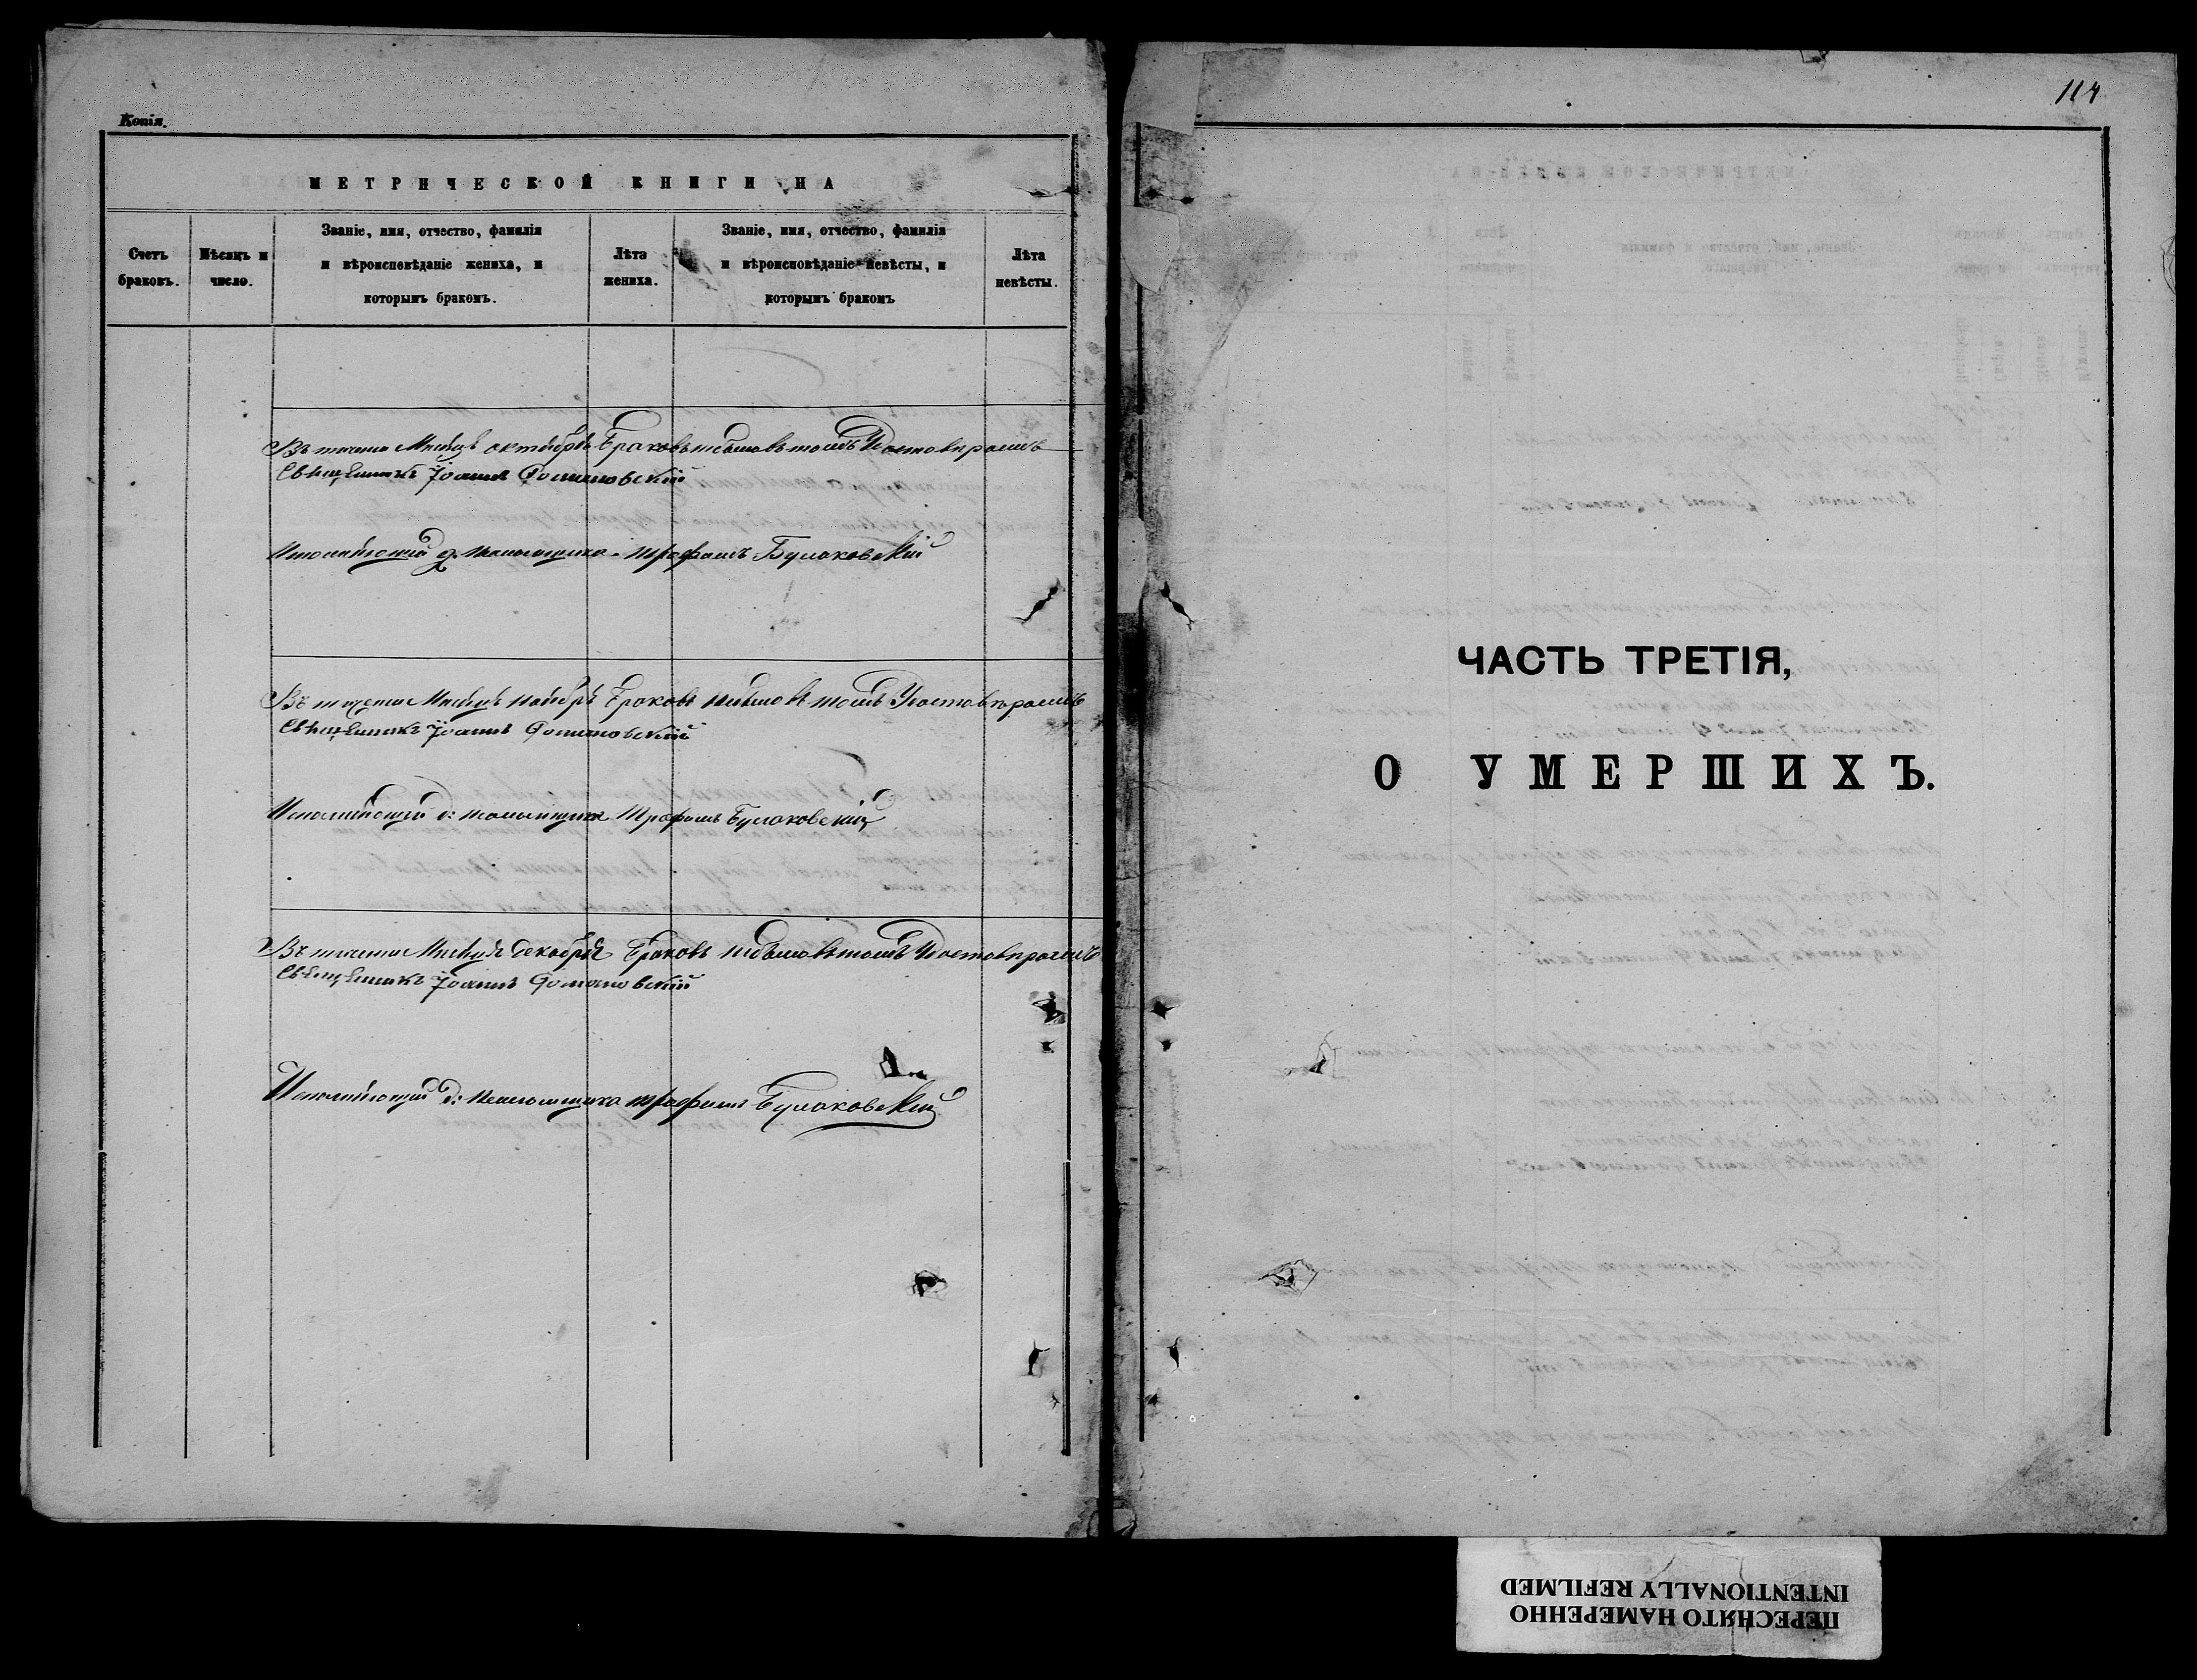 Копія.
МЕТРИЧЕСКОЙ КНИГИ НА
Счетъ браковъ.
Мѣсяцъ и число.
Званіе, имя, отчество, фамилія
и вѣроисповѣданіе жениха, и
которымъ бракомъ.
Лѣта жениха.
Званіе, имя, отчество, фамилія
и вѣроисповѣданіе невѣсты, и
которымъ бракомъ
Лѣта невѣсты.
Въ теченіе Мѣсяцѣ октябрѣ браковъ небыло въ томъ Удостовѣряемъ
Священникъ Іоаннъ
Исполняющій д. псаломщика Трофимъ Булаковскій
Въ теченіе Мѣсяцѣ ноябрѣ браковъ небыло въ томъ Удостовѣряемъ
Священникъ Іоаннъ
Исполняющій д: псаломщика Трофимъ Булаковскій
Въ теченіе Мѣсяцѣ декабрѣ браковъ небыло въ томъ Удостовѣряемъ
Священникъ Іоаннъ
Исполняющій д: псаломщика Трофимъ Булаковскій
114
ЧАСТЬ ТРЕТІЯ,
О УМЕРШИХЪ.
ПЕРЕСНЯТО НАМЕРЕННО
INTENTIONALLY REFILMED